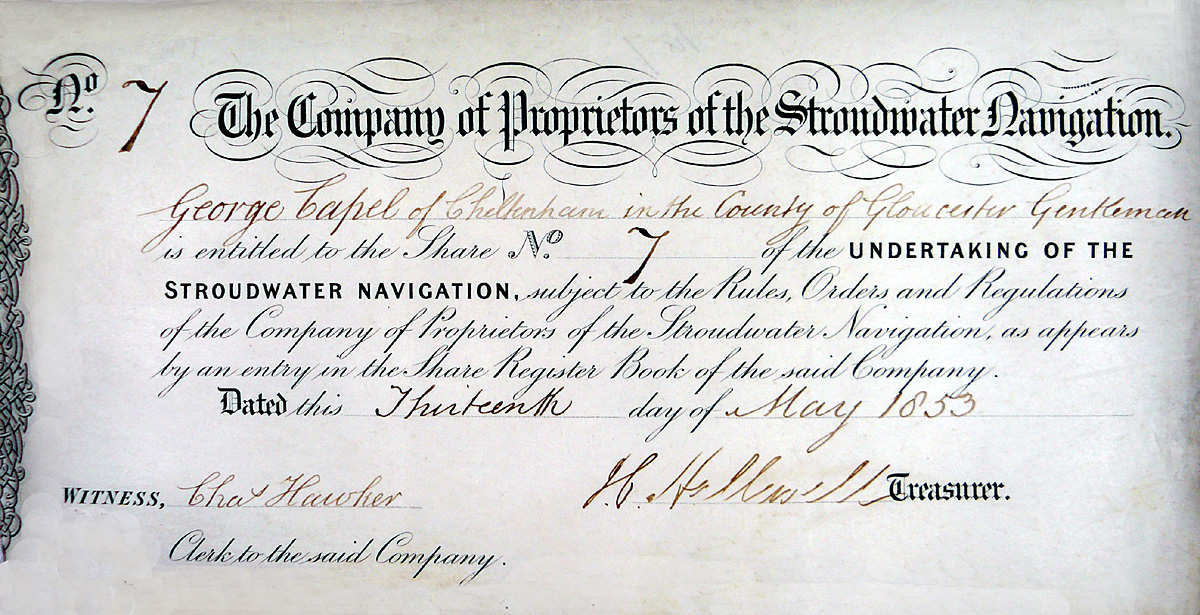 No. 7 The Company of Proprietors of the Stroudwater Navigation.
George Capel of Cheltenham in the County of Gloucester Gentleman
is entitled to the Share No. 7 of the UNDERTAKING OF THE
STROUDWATER NAVIGATION, subject to the Rules, Orders and Regulations
of the Company of Proprietors of the Stroudwater Navigation, as appears
by an entry in the Share Register Book of the said Company.
Dated this Thirteenth day of May 1853
WITNESS, Chas Hawker H. Hallewell Treasurer.
Clerk to the said Company.